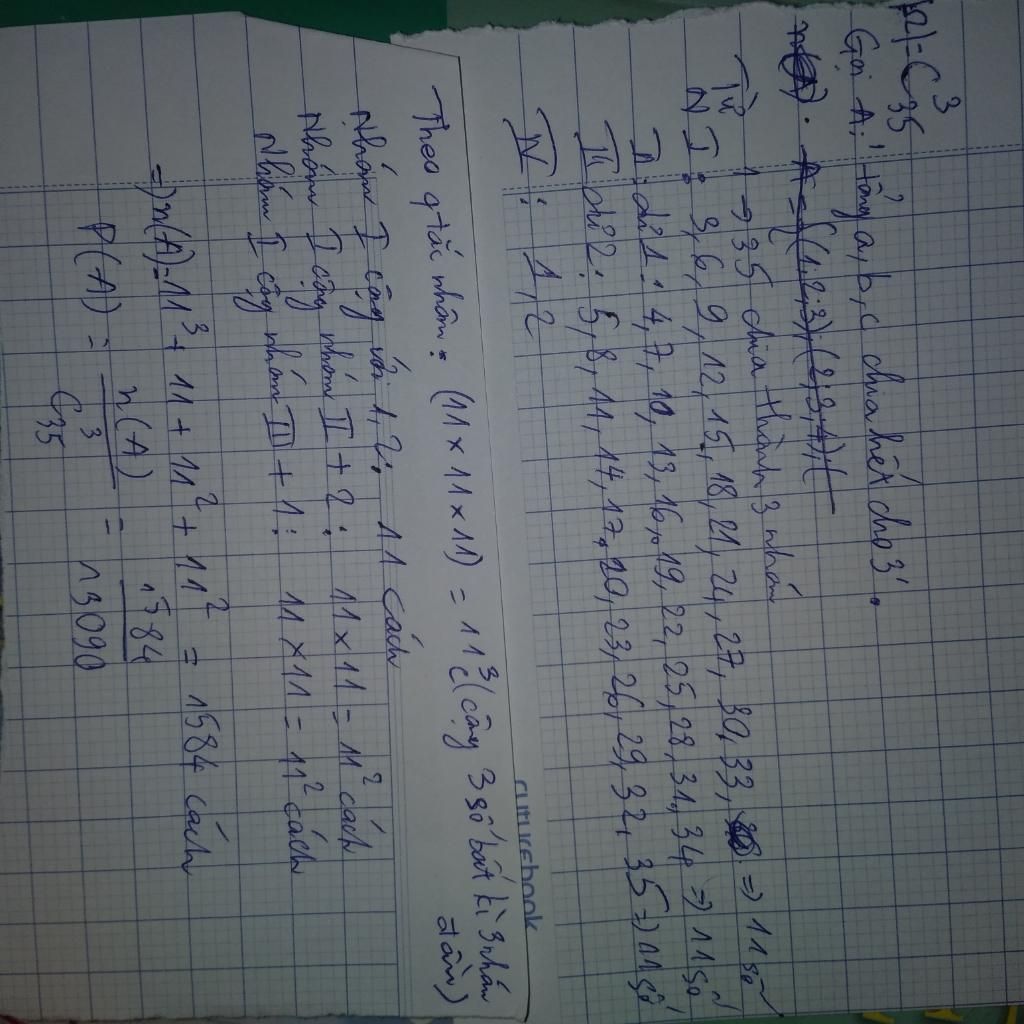 |Ω|=C³₃₅
Gọi A: "tổng a, b, c chia hết cho 3".
n(A). A = {(1,2,3),(2,3,4),(
Từ 1 → 35 chia thành 3 nhóm
N I: 3, 6, 9, 12, 15, 18, 21, 24, 27, 30, 33, => 11 số
II: dư 1: 4, 7, 10, 13, 16, 19, 22, 25, 28, 31, 34 => 11 số
III dư 2: 5, 8, 11, 14, 17, 20, 23, 26, 29, 32, 35 => 11 số
IV: 1, 2
futurebook
Theo q tắc nhân: (11 × 11 × 11) = 11³ c (cộng 3 số bất kì 3 nhóm
đầu)
Nhóm I cộng với 1, 2: 11 cách
Nhóm I cộng nhóm II + 2: 11 × 11 = 11² cách
Nhóm I cộng nhóm III + 1: 11 × 11 = 11² cách
=> n(A) = 11³ + 11 + 11² + 11² = 1584 cách
P(A) = n(A) / C³₃₅ = 1584 / 13090